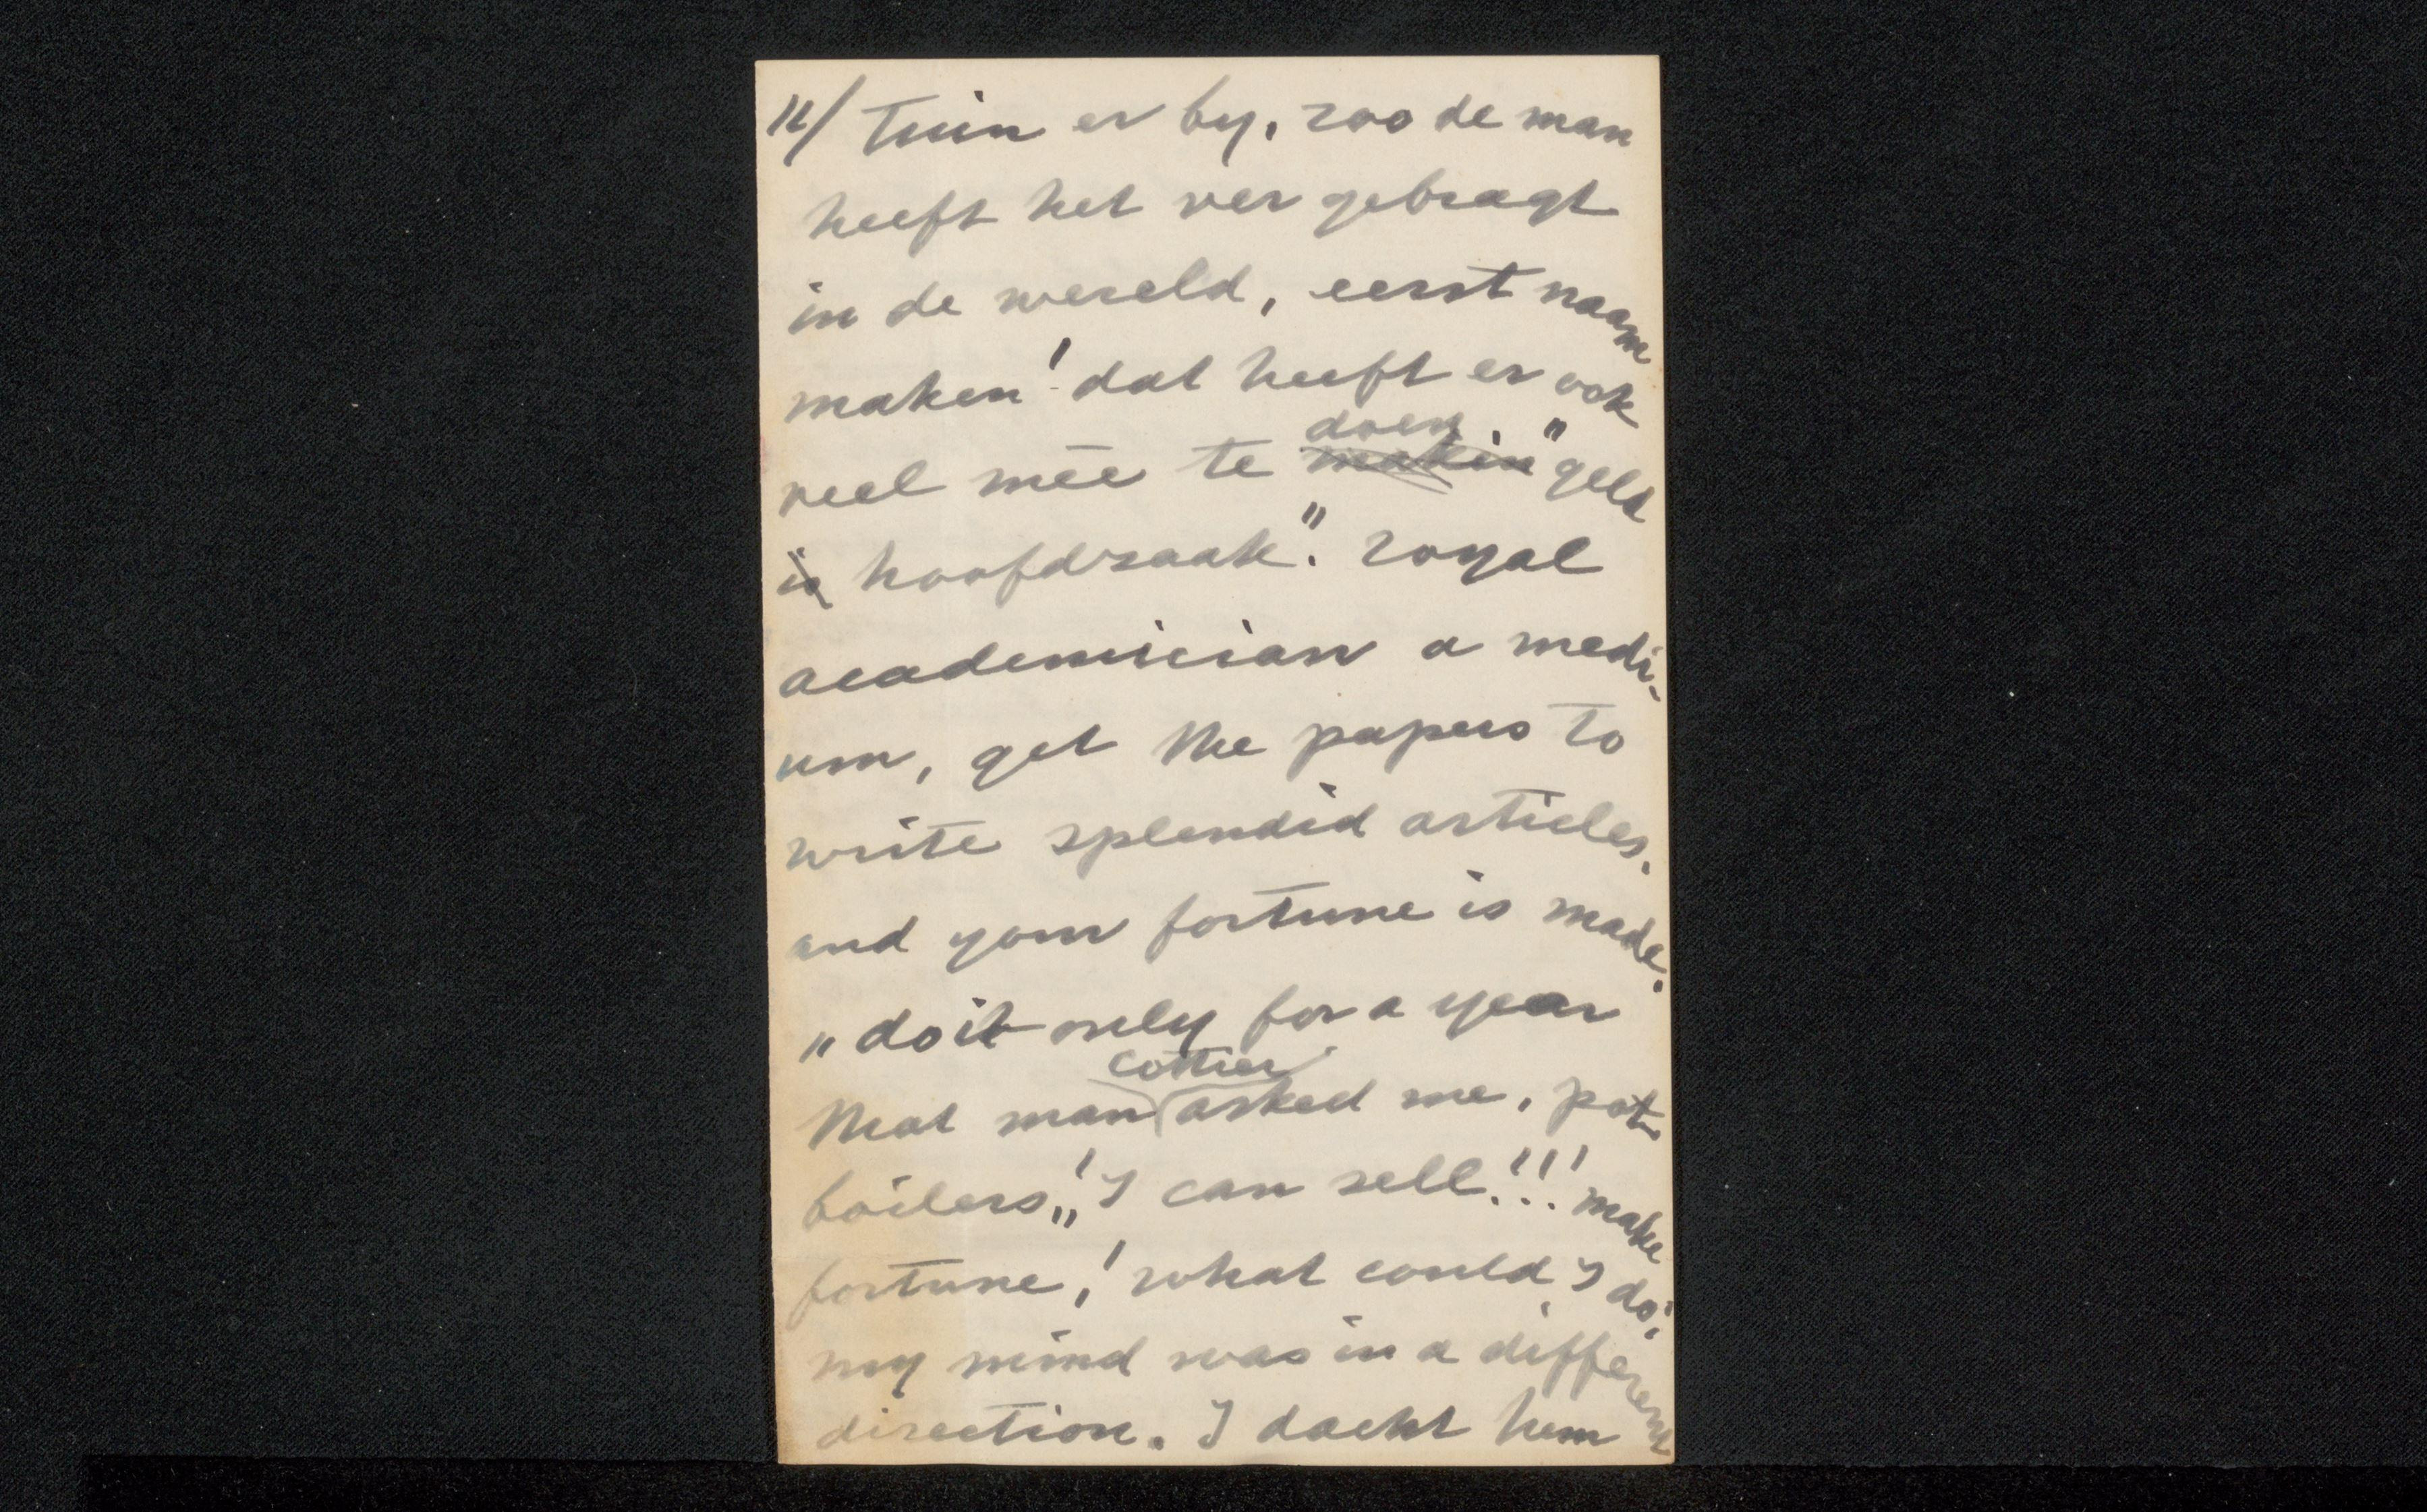 11/ tuin er by, zoo de man
heeft het ver gebragt
in de wereld, eerst naam
maken! dat heeft er ook
veel mēe te doen "geld
makin
is hoofdzaak". royal
academician a medi-
um, get the papers to
write splendid articles.
and your fortune is made.
„do it only for a year
that man Cottier asked me, pot
boilers„! I can sell!!! make
fortune,! what could I do,
my mind was in a different
direction. I dacht hem